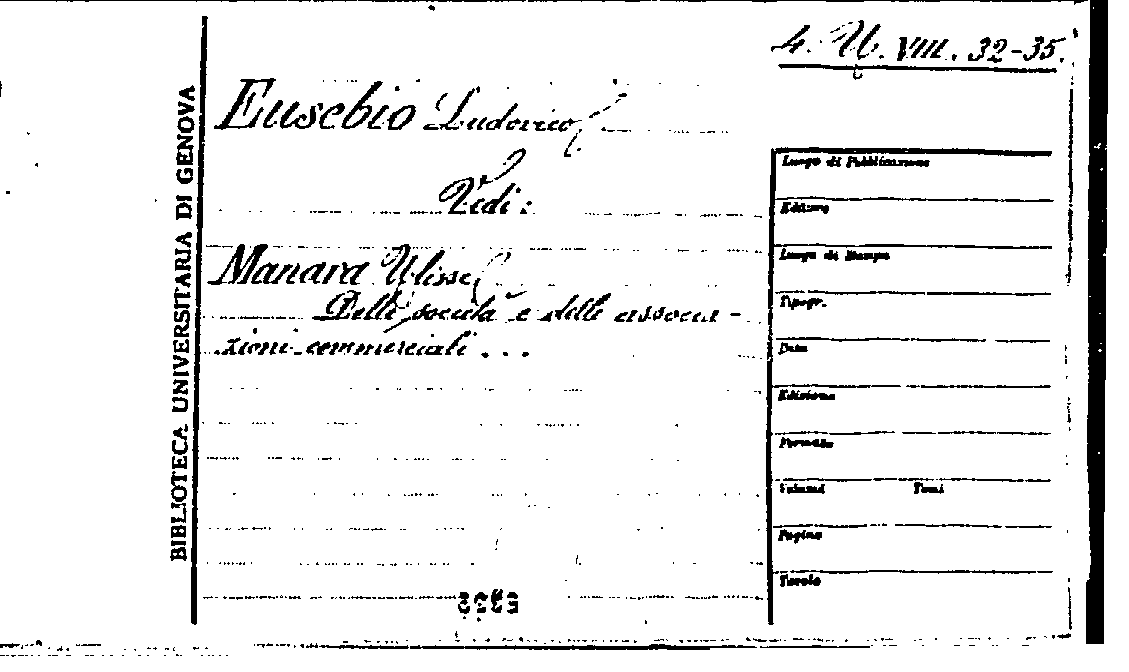 4. U. VIII. 32-35.
BIBLIOTECA UNIVERSITARIA DI GENOVA
Eusebio Ludovico
Vedi:
Manara Ulisse
Delle società e delle associa-
zioni commerciali ...
Luogo di Pubblicazione
Editore
Luogo di Stampa
Tipogr.
Data
Edizione
Formato
Volumi Tomi
Pagine
Tavole